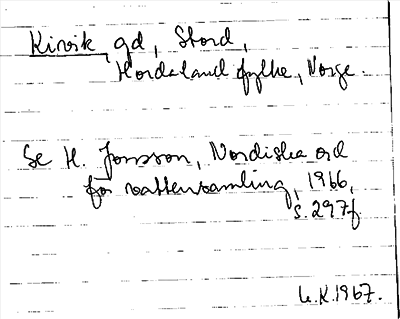 Kirvik, gd, Stord,
Hordaland fylke, Norge.
Se H. Jonsson, Nordiska ord
för vattensamling, 1966,
s. 297f.
L.K. 1967.